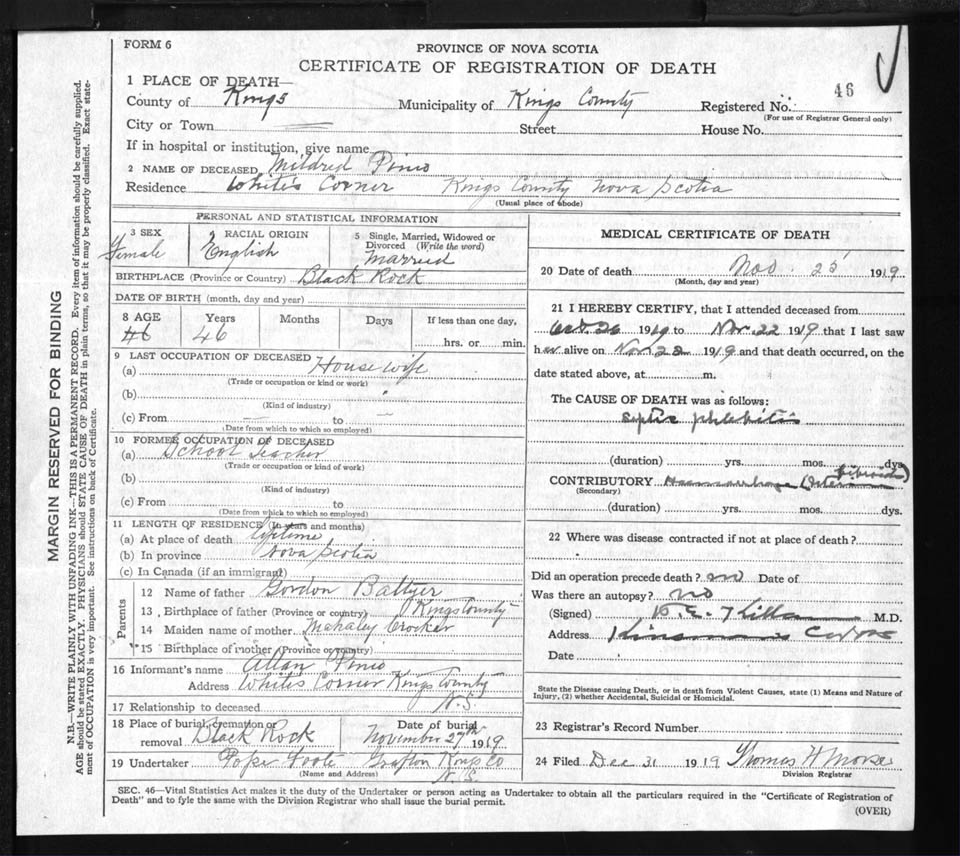 FORM 6
PROVINCE OF NOVA SCOTIA
CERTIFICATE OF REGISTRATION OF DEATH
46
1 PLACE OF DEATH—
County of Kings Municipality of Kings County Registered No.
(For use of Registrar General only)
City or Town Street House No.
If in hospital or institution, give name
2 NAME OF DECEASED Mildred Pineo
Residence White's Corner Kings County Nova Scotia
(Usual place of abode)
PERSONAL AND STATISTICAL INFORMATION
3 SEX
Female
4 RACIAL ORIGIN
English
5 Single, Married, Widowed or
Divorced (Write the word)
Married
BIRTHPLACE (Province or Country) Black Rock
DATE OF BIRTH (month, day and year)
8 AGE Years Months Days If less than one day,
46 46 hrs. or min.
9 LAST OCCUPATION OF DECEASED
(a) House wife
(Trade or occupation or kind or work)
(b)
(Kind of industry)
(c) From — to —
(Date from which to which so employed)
10 FORMER OCCUPATION OF DECEASED
(a) School Teacher
(Trade or occupation or kind of work)
(b)
(Kind of industry)
(c) From to
(Date from which to which so employed)
11 LENGTH OF RESIDENCE (In years and months)
(a) At place of death Lifetime
(b) In province Nova Scotia
(c) In Canada (if an immigrant)
Parents
12 Name of father Gordon Baltzer
13 Birthplace of father (Province or country) Kings County
14 Maiden name of mother Mahaley Crocker
15 Birthplace of mother (Province or country)
16 Informant's name Allan Pineo
Address White's Corner Kings County
N.S.
17 Relationship to deceased
18 Place of burial, cremation or
removal Black Rock
Date of burial
November 27th 1919
19 Undertaker Pope Foote Grafton Kings Co
N.S.
(Name and Address)
MEDICAL CERTIFICATE OF DEATH
20 Date of death Nov. 25, 1919
(Month, day and year)
21 I HEREBY CERTIFY, that I attended deceased from
Oct. 26 1919 to Nov. 22 1919 that I last saw
her alive on Nov 22 1919 and that death occurred, on the
date stated above, at m.
The CAUSE OF DEATH was as follows:
Septic phlebitis
(duration) yrs. mos. dys.
CONTRIBUTORY Haemorrhage (Uterine fibroids)
(Secondary)
(duration) yrs. mos. dys.
22 Where was disease contracted if not at place of death?
Did an operation precede death? no Date of
Was there an autopsy? no
(Signed) M.D.
Address
Date
State the Disease causing Death, or in death from Violent Causes, state (1) Means and Nature of
Injury, (2) whether Accidental, Suicidal or Homicidal.
23 Registrar's Record Number
24 Filed Dec 31 1919 Thomas H Morse
Division Registrar
SEC. 46—Vital Statistics Act makes it the duty of the Undertaker or person acting as Undertaker to obtain all the particulars required in the "Certificate of Registration of
Death" and to fyle the same with the Division Registrar who shall issue the burial permit.
(OVER)
MARGIN RESERVED FOR BINDING
N.B.—WRITE PLAINLY WITH UNFADING INK—THIS IS A PERMANENT RECORD. Every item of information should be carefully supplied.
AGE should be stated EXACTLY. PHYSICIANS should STATE CAUSE OF DEATH in plain terms, so that it may be properly classified. Exact state-
ment of OCCUPATION is very important. See instructions on back of Certificate.